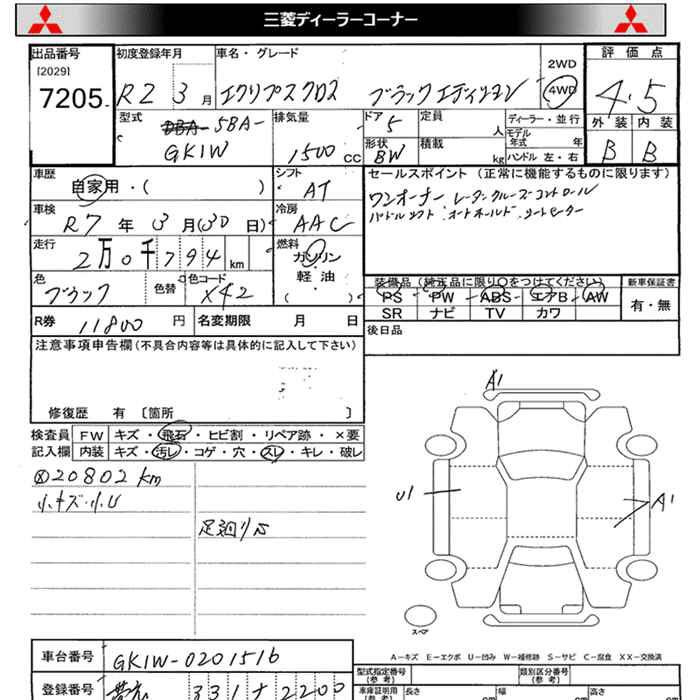 三菱ディーラーコーナー
出品番号 初度登録年月 車名・グレード 2WD 4WD 評価点
[2029]
7205 R2 3月 エクリプスクロス ブラックエディション 4.5
型式 DBA- 5BA- 排気量 ドア 5 定員 人 ディーラー・並行 外装 内装
GK1W 1500 CC 形状 BW 積載 kg モデル年式 年 ハンドル 左・右 B B
車歴 シフト セールスポイント (正常に機能するものに限ります)
自家用・( ) AT ワンオーナー レーダークルーズコントロール
車検 冷房 パドルシフト・オートホールド・シートヒーター
R7 年 3月(30日) AAC
走行 燃料
2万0千794 km ガソリン・軽油 ( )
色 色替 色コード 装備品 (純正品に限り○をつけてください) 新車保証書
ブラック X42 PS PW ABS エアB AW 有・無
SR ナビ TV カワ
R券 11800 円 名変期限 月 日 後日品
注意事項申告欄 (不具合内容等は具体的に記入して下さい)
修復歴 有 [箇所 ]
検査員 FW キズ・飛石・ヒビ割・リペア跡・×要
記入欄 内装 キズ・汚レ・コゲ・穴・スレ・キレ・破レ
20802 km
小キズ・小U
足廻りS
A1
U1
A1
スペア
A-キズ E-エクボ U-凹み W-補修跡 S-サビ C-腐食 XX-交換済
車台番号 GK1W-0201516 型式指定番号 (参考) 類別区分番号 (参考)
登録番号 331 2200 車庫証明用 (参考) 長さ cm 幅 cm 高さ cm